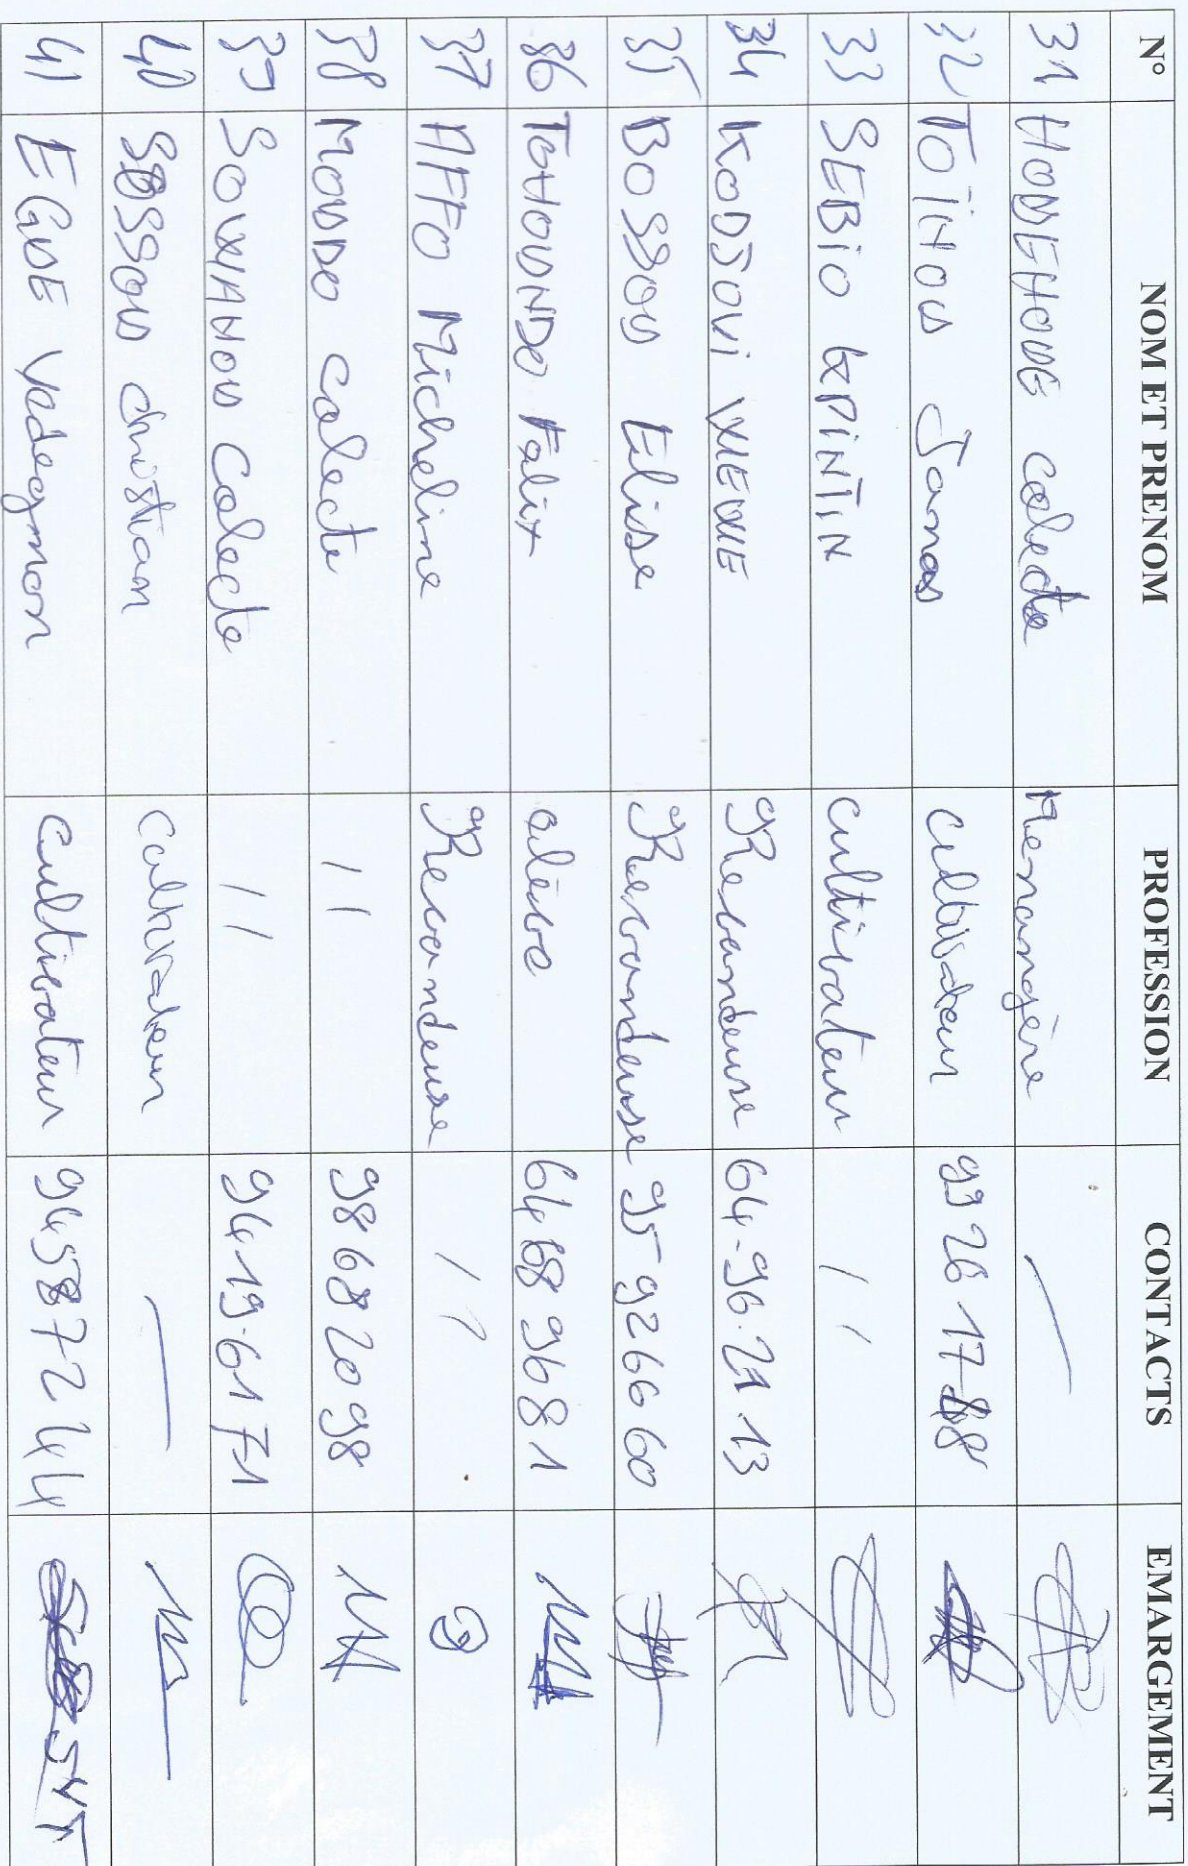 N° NOM ET PRENOM PROFESSION CONTACTS EMARGEMENT
31 HOUDEHOUE Celecte Menangère —
32 TOÏHOU Jonas Cultivateur 99 26 17 88
33 SEBIO KPINTIN Cultivateur //
34 KODJOVI WIEWIE Revandeuse 64-96-21 13
35 BOSSOU Elise Revandeuse 95 92 66 60
36 TOHOUNDO Felix elève 64 68 96 81
37 AFFO Micheline Revandeuse //
38 MOUDO Celecte // 98 68 20 98
39 SOWANOU Celecte // 94-19-61 71
40 SOSSOU christian Cultivateur —
41 EGUE Yadegnon Cultivateur 94 58 72 44